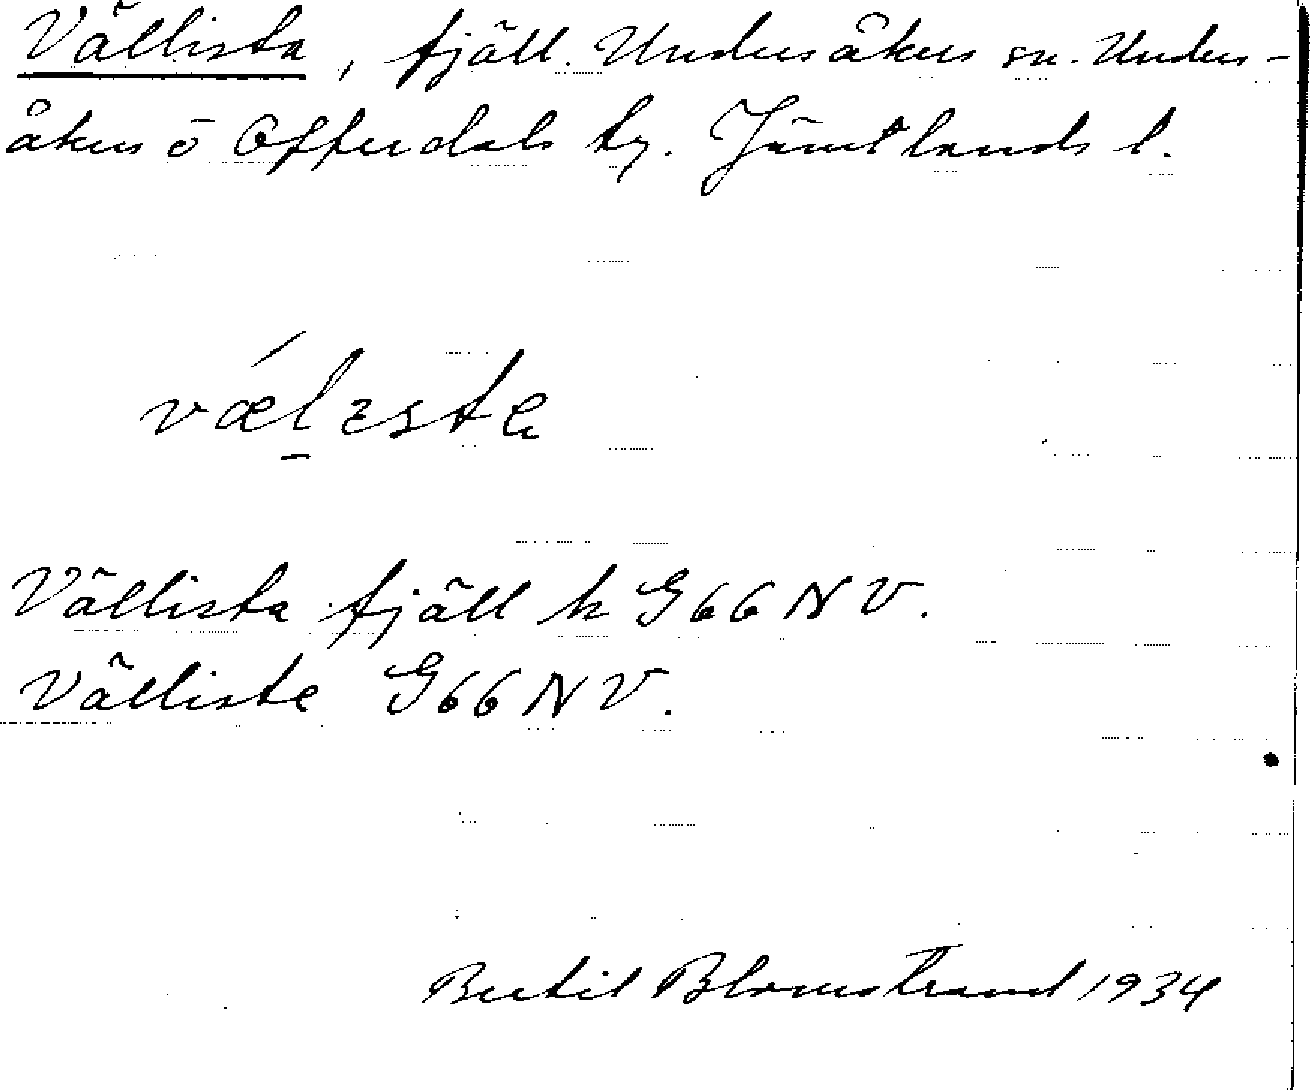 Vällista, fjäll. Undersåkers sn. Under-
åkers o Offerdals tg. Jämtlands l.
væ̀lɛsta
Vällista fjäll k G66NV.
Välliste G66NV.
Bertil Blomstrand 1934